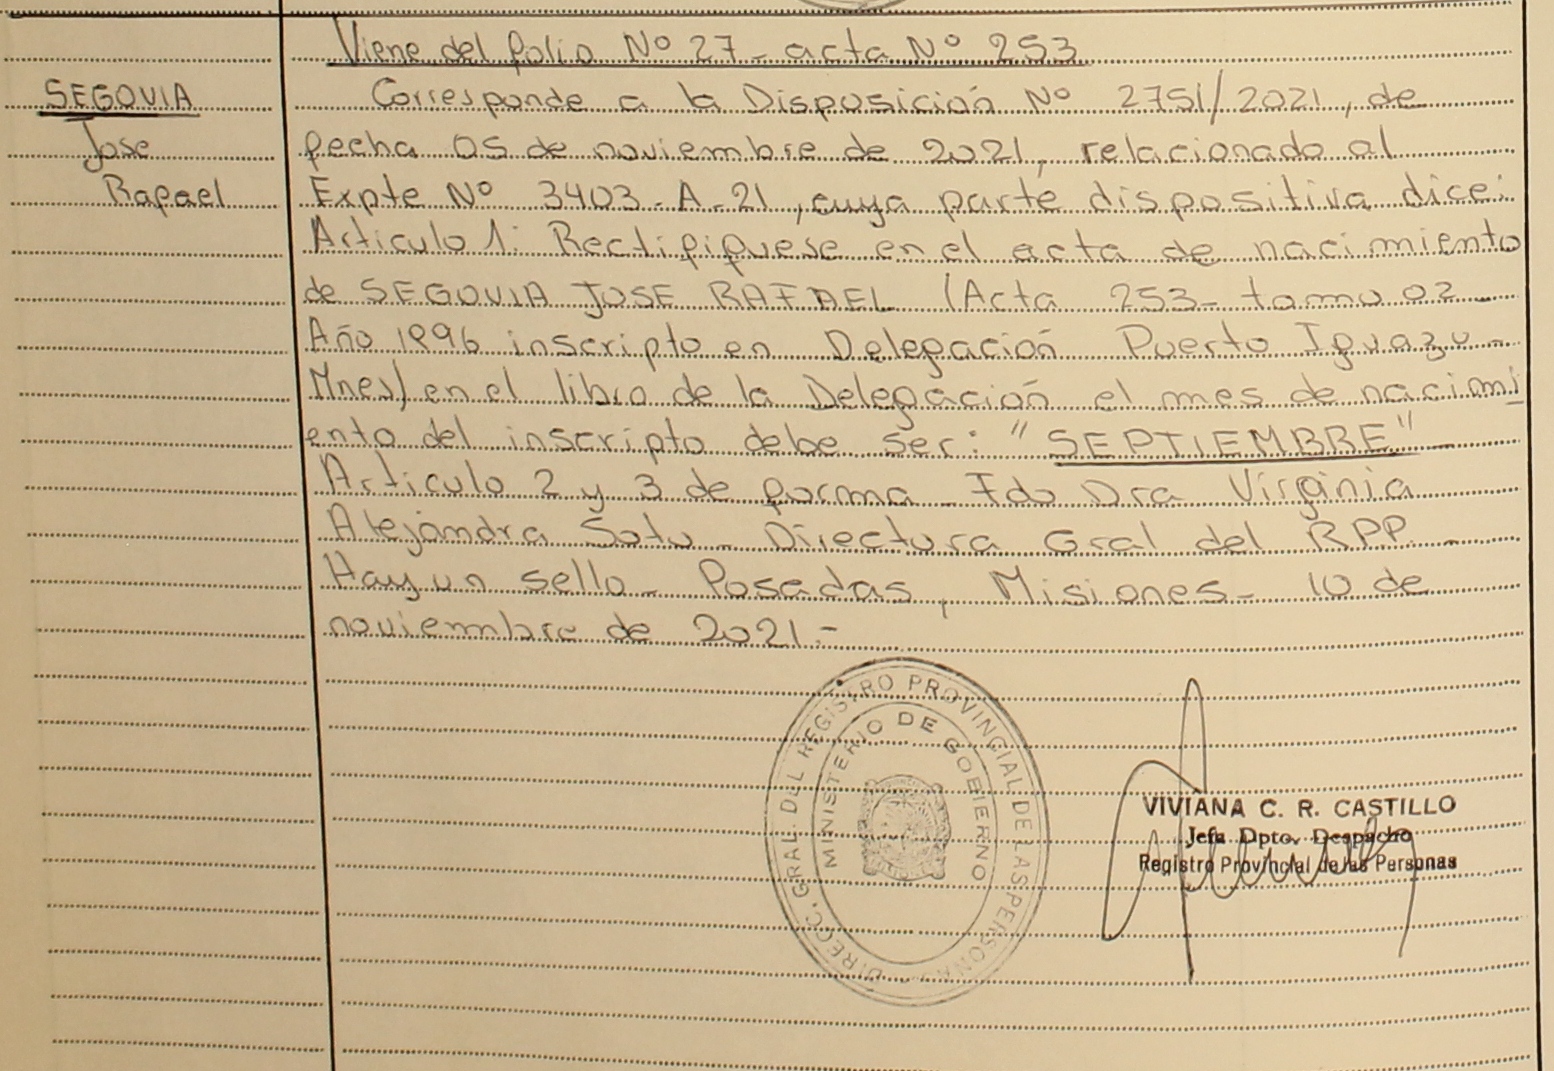 Viene del folio Nº 27 - acta Nº 253
SEGOVIA
Jose
Rafael
Corresponde a la Disposición Nº 2751/2021, de
fecha 05 de noviembre de 2021, relacionado al
Expte Nº 3403-A-21, cuya parte dispositiva dice:
Articulo 1: Rectifiquese en el acta de nacimiento
de SEGOVIA JOSE RAFAEL (Acta 253- tomo 02
Año 1996 inscripto en Delegación Puerto Iguazu -
Mnes) en el libro de la Delegación el mes de nacimi
ento del inscripto debe ser: "SEPTIEMBRE"
Articulo 2 y 3 de forma - Fdo Dra Virginia
Alejandra Soto - Directora Gral del RPP. -
Hay un sello - Posadas, Misiones - 10 de
noviembre de 2021.-
DIREC. GRAL. DEL REGISTRO PROVINCIAL DE LAS PERSONAS
MINISTERIO DE GOBIERNO
VIVIANA C. R. CASTILLO
Jefa Dpto. Despacho
Registro Provincial de las Personas